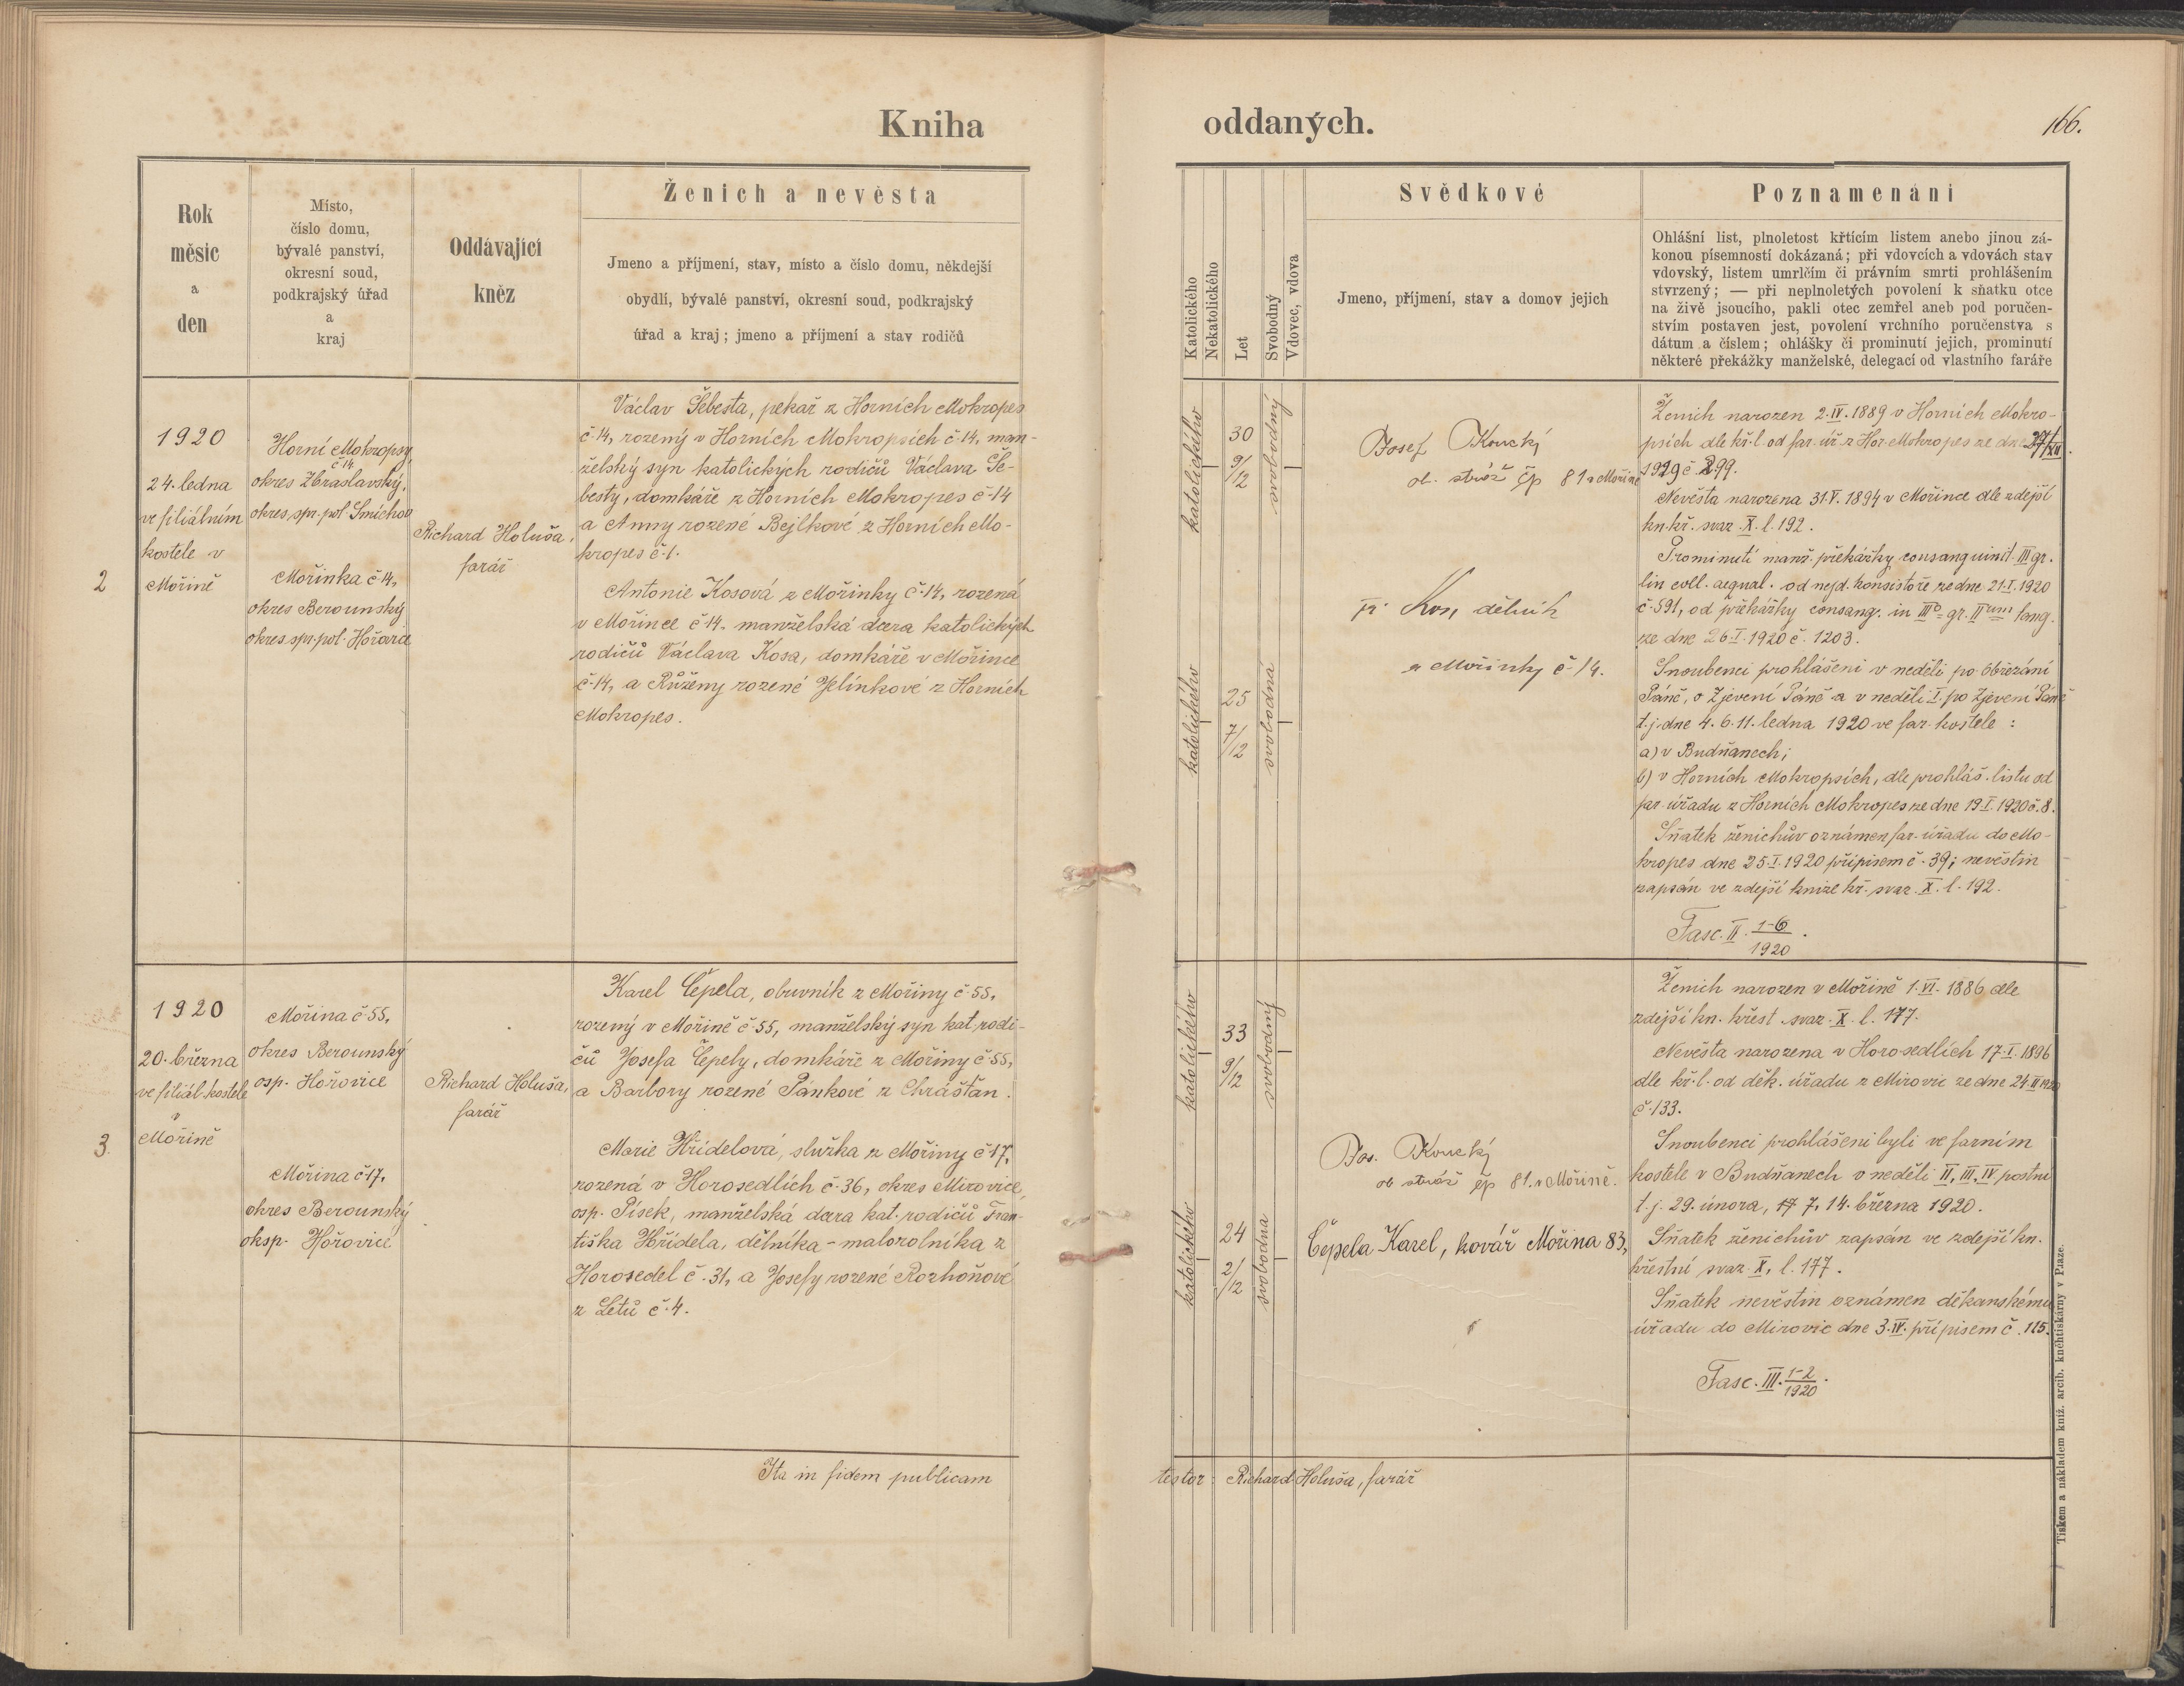 Kniha
oddaných.
166.
Rok
měsíc
a
den
Místo,
číslo domu,
bývalé panství,
okresní soud,
podkrajský úřad
a
kraj
Oddávající
kněz
Ženich a nevěsta
Jmeno a příjmení, stav, místo a číslo domu, někdejší
obydlí, bývalé panství, okresní soud, podkrajský
úřad a kraj; jmeno a příjmení a stav rodičů
Katolického
Nekatolického
Let
Svobodný
Vdovec, vdova
Svědkové
Jmeno, příjmení, stav a domov jejich
Poznamenání
Ohlášní list, plnoletost křtícím listem anebo jinou zá-
konou písemností dokázaná; při vdovcích a vdovách stav
vdovský, listem umrlčím či právním smrti prohlášením
stvrzený; — při neplnoletých povolení k sňatku otce
na živě jsoucího, pakli otec zemřel aneb pod poručen-
stvím postaven jest, povolení vrchního poručenstva s
dátum a číslem; ohlášky či prominutí jejich, prominutí
některé překážky manželské, delegací od vlastního faráře
2
1920
24. ledna
ve filiálním
kostele v
Mořině
Horní Mokropsy
č 14,
okres Zbraslavský,
okres. spr. pol. Smíchov
Mořinka č. 14,
okres Berounský
okres. spr. pol. Hořovice
Richard Holuša,
farář
Václav Šebesta, pekař z Horních Mokropes
č. 14, rozený v Horních Mokropsích č. 14, man-
želský syn katolických rodičů Václava Še-
besty, domkáře z Horních Mokropes č. 14
a Anny rozené Bejlkové z Horních Mo-
kropes č. 1.
Antonie Kosová z Mořinky č. 14, rozená
v Mořince č. 14. manželská dcera katolických
rodičů Václava Kosa, domkáře v Mořince
č. 14, a Růženy rozené Jelínkové z Horních
Mokropes.
katolického
30
9/12
svobodný
katolického
25
7/12
svobodná
Josef Koucký
ob. stráž čp 81 v Mořině
Fr. Kos, dělník
z Mořinky č. 14.
Ženich narozen 2. IV. 1889 v Horních Mokro-
psích dle kř. l. od far. úř. z Hor. Mokropes ze dne 27/XII.
1919 č. 299.
Nevěsta narozena 31. V. 1894 v Mořince dle zdejší
kn. kř. svaz. X. l. 192.
Prominutí manž. překážky consanguinit. III gr.
lin coll. aequal. od nejd. konsistoře ze dne 21. I. 1920
č. 591, od překážky consang. in IIIo gr. IIum tang.
ze dne 26. I. 1920 č. 1203.
Snoubenci prohlášeni v neděli po Obřezání
Páně, o Zjevení Páně a v neděli I. po Zjevení Páně
t. j. dne 4. 6. 11. ledna 1920 ve far. kostele :
a) v Budňanech;
b) v Horních Mokropsích, dle prohláš. listu od
far. úřadu z Horních Mokropes ze dne 19. I. 1920 č. 8.
Sňatek ženichův oznámen far. úřadu do Mo-
kropes dne 25. I. 1920 přípisem č. 39; nevěstin
zapsán ve zdejší knize kř. svaz. X. l. 192.
Fasc. II. 1-6/1920.
3
1920
20. března
ve filiál. kostele
v
Mořině
Mořina č. 55,
okres Berounský
osp. Hořovice
Mořina č 17,
okres Berounský
oksp. Hořovice
Richard Holuša,
farář
Karel Čepela, obuvník z Mořiny č. 55,
rozený v Mořině č. 55, manželský syn kat. rodi-
čů Josefa Čepely, domkáře z Mořiny č. 55,
a Barbory rozené Pánkové z Chráštan.
Marie Hřídelová, služka z Mořiny č. 17,
rozená v Horosedlích č. 36, okres Mirovice,
osp. Písek, manželská dcera kat. rodičů Fran-
tiška Hřídela, dělníka - malorolníka z
Horosedel č. 31, a Josefy rozené Rozhoňové
z Letů č. 4.
katolického
33
9/12
svobodný
katolického
24
2/12
svobodna
Jos. Koucký
ob stráž čp 81. v Mořině.
Čepela Karel, kovář Mořina 83,
Ženich narozen v Mořině 1. VI. 1886 dle
zdejší kn. křest. svaz. X. l. 177.
Nevěsta narozena v Horosedlích 17. I. 1896
dle kř. l. od děk. úřadu z Mirovic ze dne 24. II 1920
č. 133.
Snoubenci prohlášeni byli ve farním
kostele v Budňanech v neděli II, III, IV postní
t. j. 29. února, 7, 14. března 1920.
Sňatek ženichův zapsán ve zdejší kn.
křestní svaz. X, l. 177.
Sňatek nevěstin oznámen děkanskému
úřadu do Mirovic dne 3. IV. přípisem č. 115.
Fasc. III. 1-2/1920.
Ita in fidem publicam
testor : Richard Holuša, farář
Tiskem a nákladem kníž. arcib. kněhtiskárny v Praze.